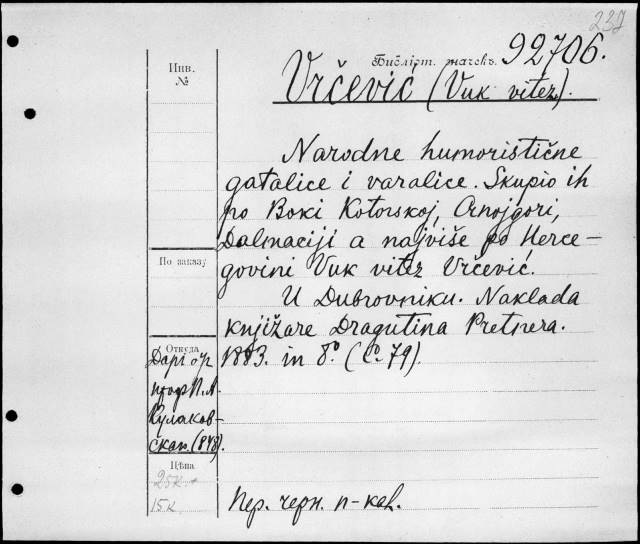 237
Инв.
№
Библіот. значекъ.
92706.
Vrčević (Vuk vitez).
Narodne humoristične
gatalice i varalice. Skupio ih
po Boki Kotorskoj, Crnojgori,
Dalmaciji a najviše po Herce-
govini Vuk vitez Vrčević.
По заказу
U Dubrovniku. Naklada
knjižare Dragutina Pretnera.
1883. in 8.° (С. 79).
Откуда
Даръ отъ
проф. П. А.
Кулаков-
скаго.
Цѣна
25к.
15к
Пер. черн. п-